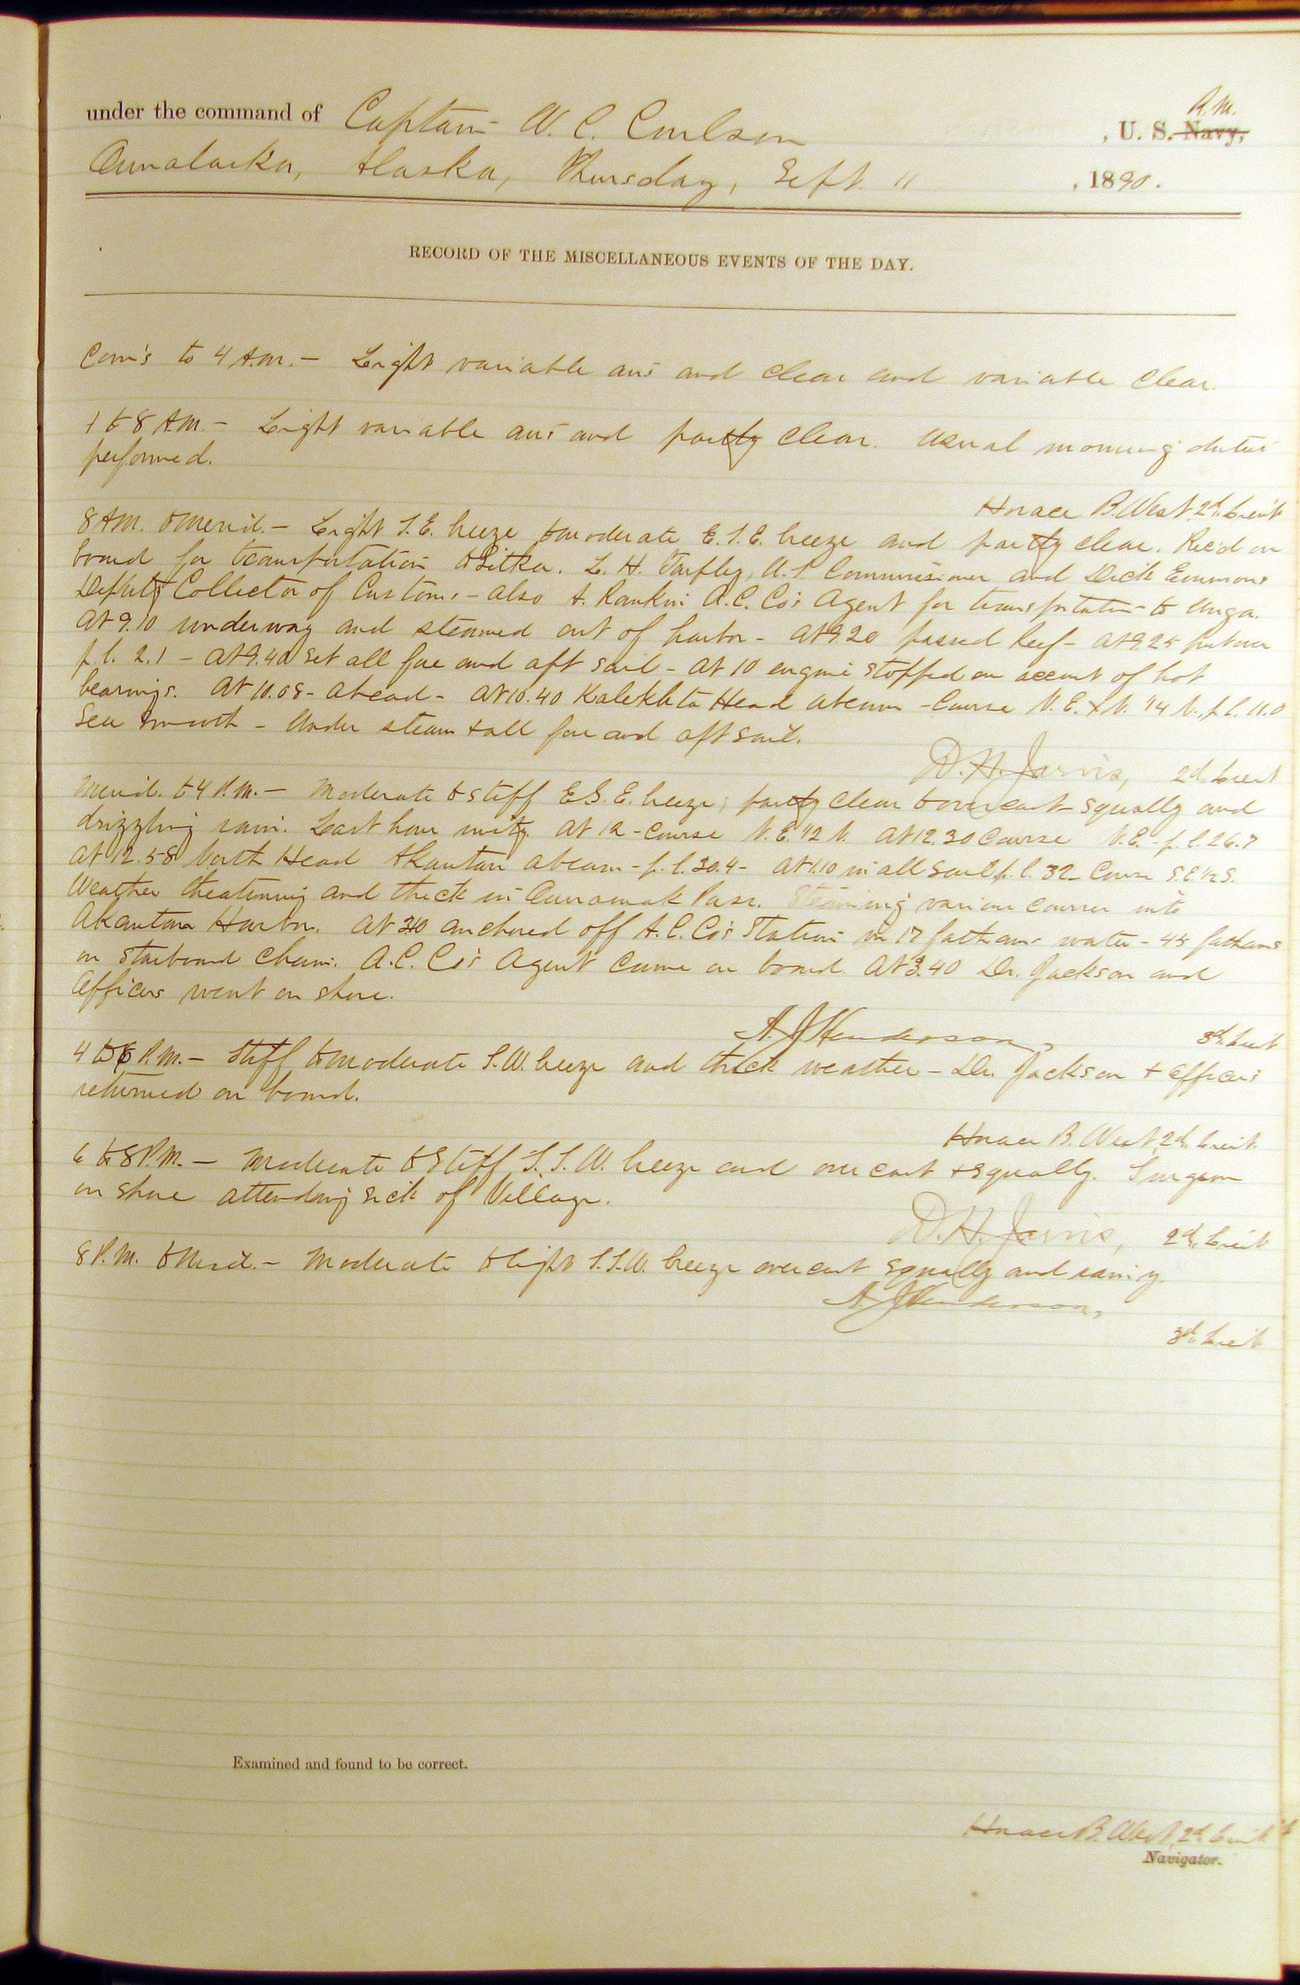 under the command of Captain W. C. Coulson , U. S. Navy, R. M.
Ounalaska, Alaska, Thursday, Sept. 11 , 1890.
RECORD OF THE MISCELLANEOUS EVENTS OF THE DAY.
Com's to 4 A.M. — Light variable airs and clear and variable clear.
4 to 8 A.M. — Light variable airs and partly clear. Usual morning duties
performed.
Horace B. West 2d. Lieut
8 A.M. to Merid. — Light S.E. breeze to moderate E.S.E. breeze and partly clear. Rec'd on
board for transportation to Sitka. L. H. Tarpley, U.S. Commissioner and Dick Emmons
Deputy Collector of Customs — also A. Rankin A.C. Co's Agent for transportation to Unga.
At 9.10 underway and steamed out of harbor — At 9.20 passed Reef — At 9.25 put over
p.l. 2.1 — At 9.40 set all fore and aft sail — At 10 engine stopped on account of hot
bearings. At 10.08 — Ahead — At 10.40 Kalekhta Head abeam — Course N.E. x N. 1/4 N. p.l. 11.0
Sea smooth — Under steam & all fore and aft sail.
D. H. Jarvis, 2d. Lieut
Merid. to 4 P.M. — Moderate to stiff E.S.E. breeze; partly clear to overcast squally and
drizzling rain. Last hour misty. At 12 — Course N.E. 1/2 N. At 12.30 Course N.E. — p.l. 26.7
At 12.58 North Head Akoutan abeam — p.l. 30.4 — At 1.10 in all sail, p.l. 32 — Course S.E. 1/2 S.
Weather threatening and thick in Ounamak Pass. Steaming various courses into
Akoutan Harbor. At 3.10 anchored off A.C. Co's Station in 17 fathoms water — 45 fathoms
on starboard chain. A.C. Co's Agent came on board. At 3.40 Dr. Jackson and
Officers went on shore.
A. J. Henderson, 3d. Lieut
4 to 6 P.M. — Stiff to moderate S.W. breeze and thick weather — Dr. Jackson & Officers
returned on board.
Horace B. West 2d. Lieut.
6 to 8 P.M. — Moderate to stiff S.S.W. breeze and overcast & squally. Surgeon
on shore attending sick of Village.
D. H. Jarvis, 2d. Lieut
8 P.M. to Mid. — Moderate to light S.S.W. breeze overcast squally and rainy.
A. J. Henderson,
3d. Lieut
Examined and found to be correct.
Horace B. West, 2d. Lieut
Navigator.